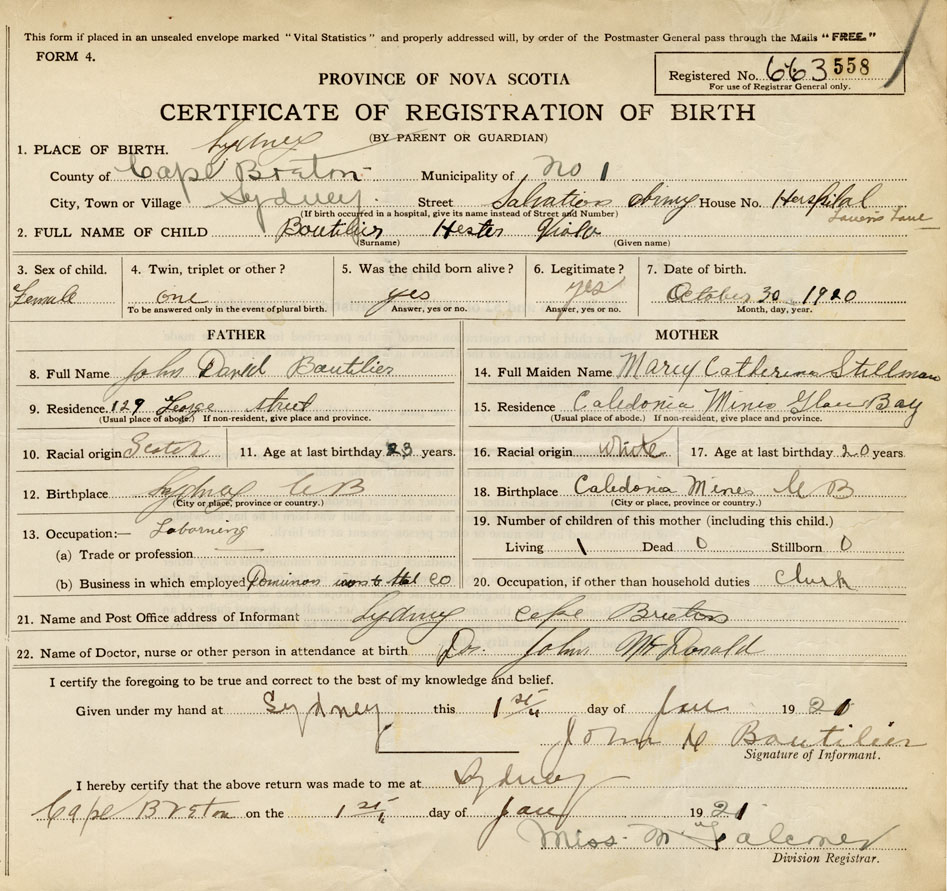 This form if placed in an unsealed envelope marked "Vital Statistics" and properly addressed will, by order of the Postmaster General pass through the Mails "FREE."
FORM 4.
PROVINCE OF NOVA SCOTIA
Registered No. 663 558
For use of Registrar General only.
CERTIFICATE OF REGISTRATION OF BIRTH
(BY PARENT OR GUARDIAN)
1. PLACE OF BIRTH. Sydney
County of Cape Breton Municipality of No 1
City, Town or Village Sydney Street Salvation Army House No. Hospital
(If birth occurred in a hospital, give its name instead of Street and Number)
2. FULL NAME OF CHILD Boutilier Hester Viola
(Surname) (Given name)
3. Sex of child. 4. Twin, triplet or other? 5. Was the child born alive? 6. Legitimate? 7. Date of birth.
Female one yes yes October 30 1920
To be answered only in the event of plural birth. Answer, yes or no. Answer, yes or no. Month, day, year.
FATHER
8. Full Name John David Boutilier
9. Residence. 129 George street
(Usual place of abode.) If non-resident, give place and province.
10. Racial origin Scotch 11. Age at last birthday 23 years.
12. Birthplace Sydney C B
(City or place, province or country.)
13. Occupation:— Laborning
(a) Trade or profession
(b) Business in which employed Dominon CO
MOTHER
14. Full Maiden Name Mary Catherina Stillman
15. Residence Caledonia Mines Glace Bay
(Usual place of abode.) If non-resident, give place and province.
16. Racial origin White 17. Age at last birthday 20 years.
18. Birthplace Caledonia Mines C B
(City or place, province or country.)
19. Number of children of this mother (including this child.)
Living 1 Dead 0 Stillborn 0
20. Occupation, if other than household duties Clurk
21. Name and Post Office address of Informant Sydney Cape Breton
22. Name of Doctor, nurse or other person in attendance at birth Dr. John McDonald
I certify the foregoing to be true and correct to the best of my knowledge and belief.
Given under my hand at Sydney this 1st day of Jan 1921
John D Boutilier
Signature of Informant.
I hereby certify that the above return was made to me at Sydney
Cape Breton on the 1st day of Jan 1921
Miss M Falconer
Division Registrar.